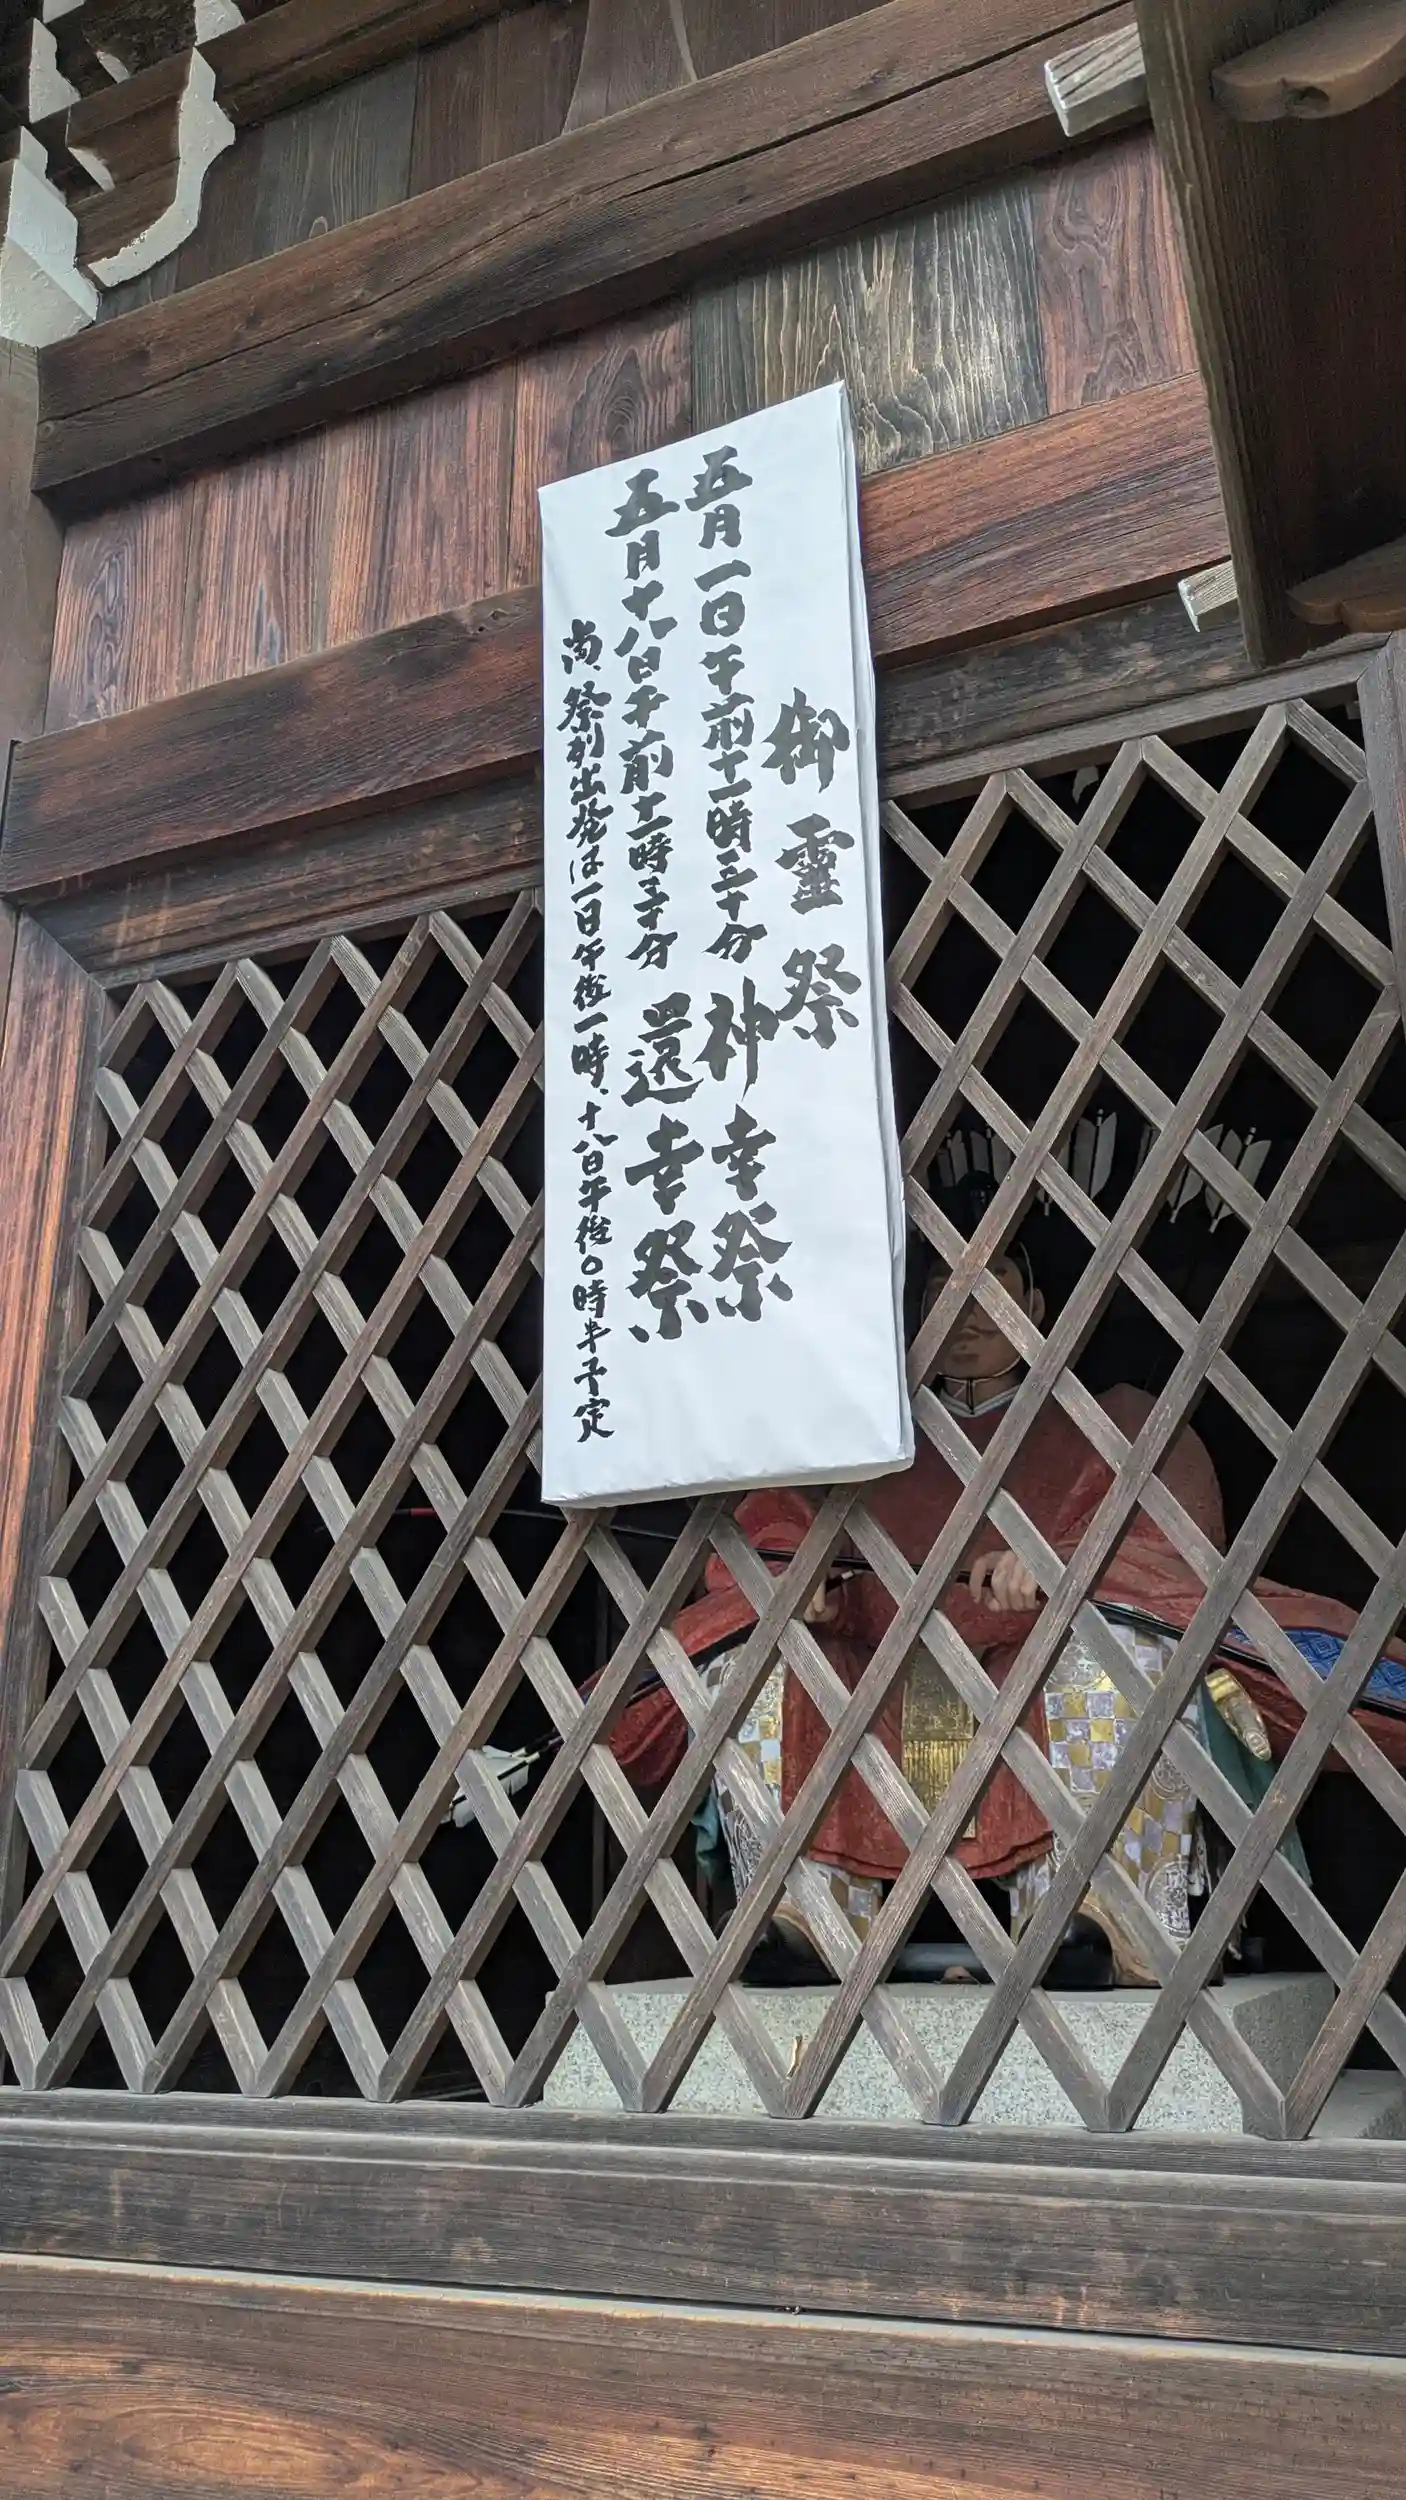 御霊祭
五月一日午前十一時三十分 神幸祭
五月十八日午前十一時三十分 還幸祭
尚、祭列出発は一日午後一時、十八日午後〇時半予定